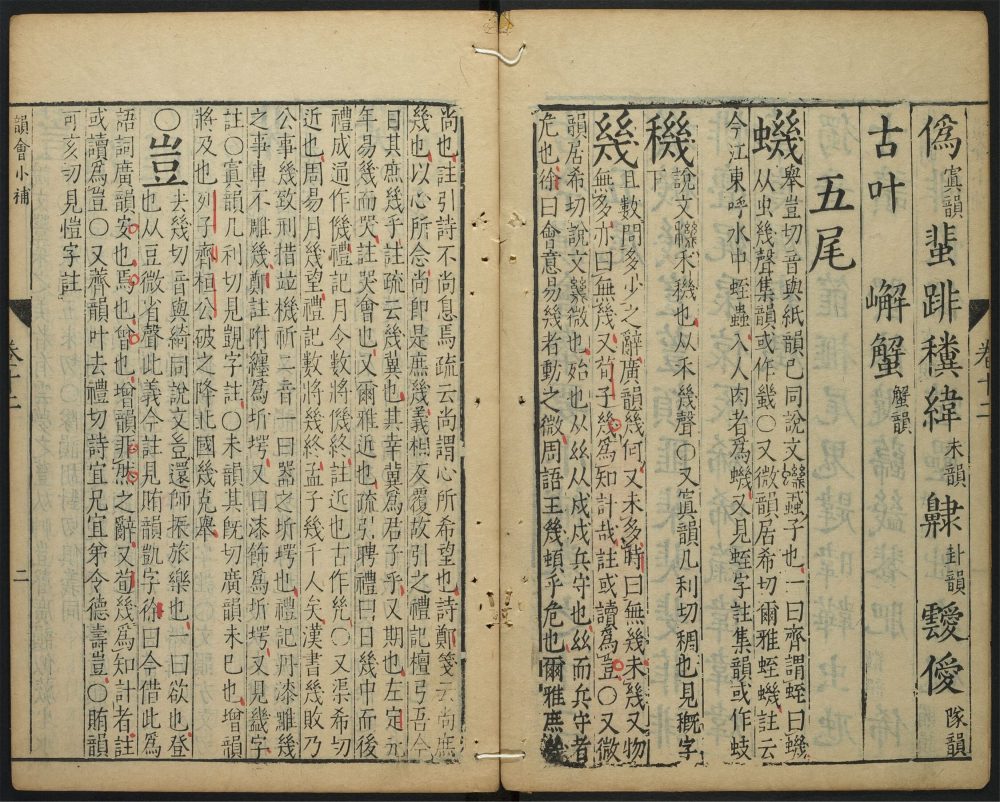 偽寘韻蜚跰糞緯未韻𣤶卦韻靉僾隊韻
古叶 嶰蟹蟹韻
五尾
蟣舉豈切音與紙韻己同說文蟣蝨子也一曰齊謂蛭曰蟣
从虫幾聲集韻或作䥓〇又微韻居希切爾雅蛭蟣註云
今江東呼水中蛭蟲入人肉者爲蟣又見蛭字註集韻或作蚑
穖說文穖禾穖也从禾幾聲〇又寘韻几利切稠也見穊字
下
幾且數問多少之辭廣韻幾何又未多時曰無幾未幾又物
無多亦曰無幾又荀子幾爲知計哉註或讀爲豈〇又微
韻居希切說文幾微也殆也从𢆶从戍戍兵守也𢆶而兵守者
危也徐曰會意易幾者動之微周語王幾頓乎危也爾雅庶幾
尚也註引詩不尚息焉疏云尚謂心所希望也詩鄭箋云尚庶
幾也以心所念尚即是庶幾義相反覆故引之禮記檀弓吾今
日其庶幾乎註疏云幾冀也其幸冀爲君子乎又期也左定元
年易幾而哭註哭會也又爾雅近也疏引聘禮曰日幾中而後
禮成通作僟禮記月令數將僟終註近也古作㡬〇又渠希切
近也周易月幾望禮記數將幾終孟子幾千人矣漢書幾敗乃
公事幾致刑措竝機祈二音一曰器之圻堮也禮記丹漆雕幾
之事車不雕幾鄭註附纏爲圻堮又曰漆飾爲圻堮又見畿字
註〇寘韻几利切見覬字註〇未韻其旣切廣韻未巳也增韻
將及也列子齊桓公破之降北國幾克舉
〇豈去幾切音與綺同說文豈還師振旅樂也一曰欲也登
也从豆微省聲此義今註見賄韻凱字徐曰今借此爲
語詞廣韻安也焉也曾也增韻非然之辭又荀幾爲知計者註
或讀爲豈〇又薺韻叶去禮切詩宜兄宜弟令德壽豈〇賄韻
可亥切見愷字註
韻會小補
卷十二
二
卷十二